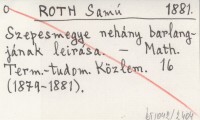 o ROTH Samú 1881.
Szepesmegye nehány barlang-
jának leirása. – Math.
Term.-tudom. Közlem. 16
(1879-1881).